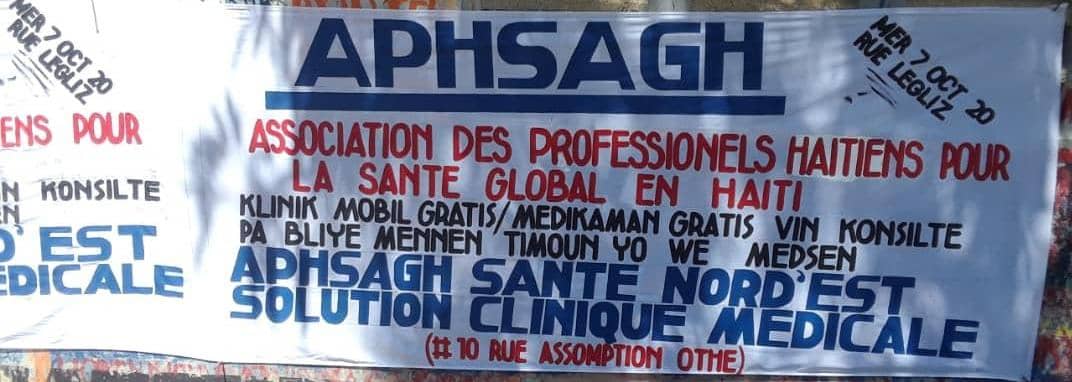 MER 7 OCT 20
RUE LEGLIZ
ENS POUR
N KONSILTE
EN
D'EST
EDICALE
APHSAGH
MER 7 OCT 20
RUE LEGLIZ
ASSOCIATION DES PROFESSIONELS HAITIENS POUR
LA SANTE GLOBAL EN HAITI
KLINIK MOBIL GRATIS/MEDIKAMAN GRATIS VIN KONSILTE
PA BLIYE MENNEN TIMOUN YO WE MEDSEN
APHSAGH SANTE NORD'EST
SOLUTION CLINIQUE MEDICALE
(#10 RUE ASSOMPTION OTHE)